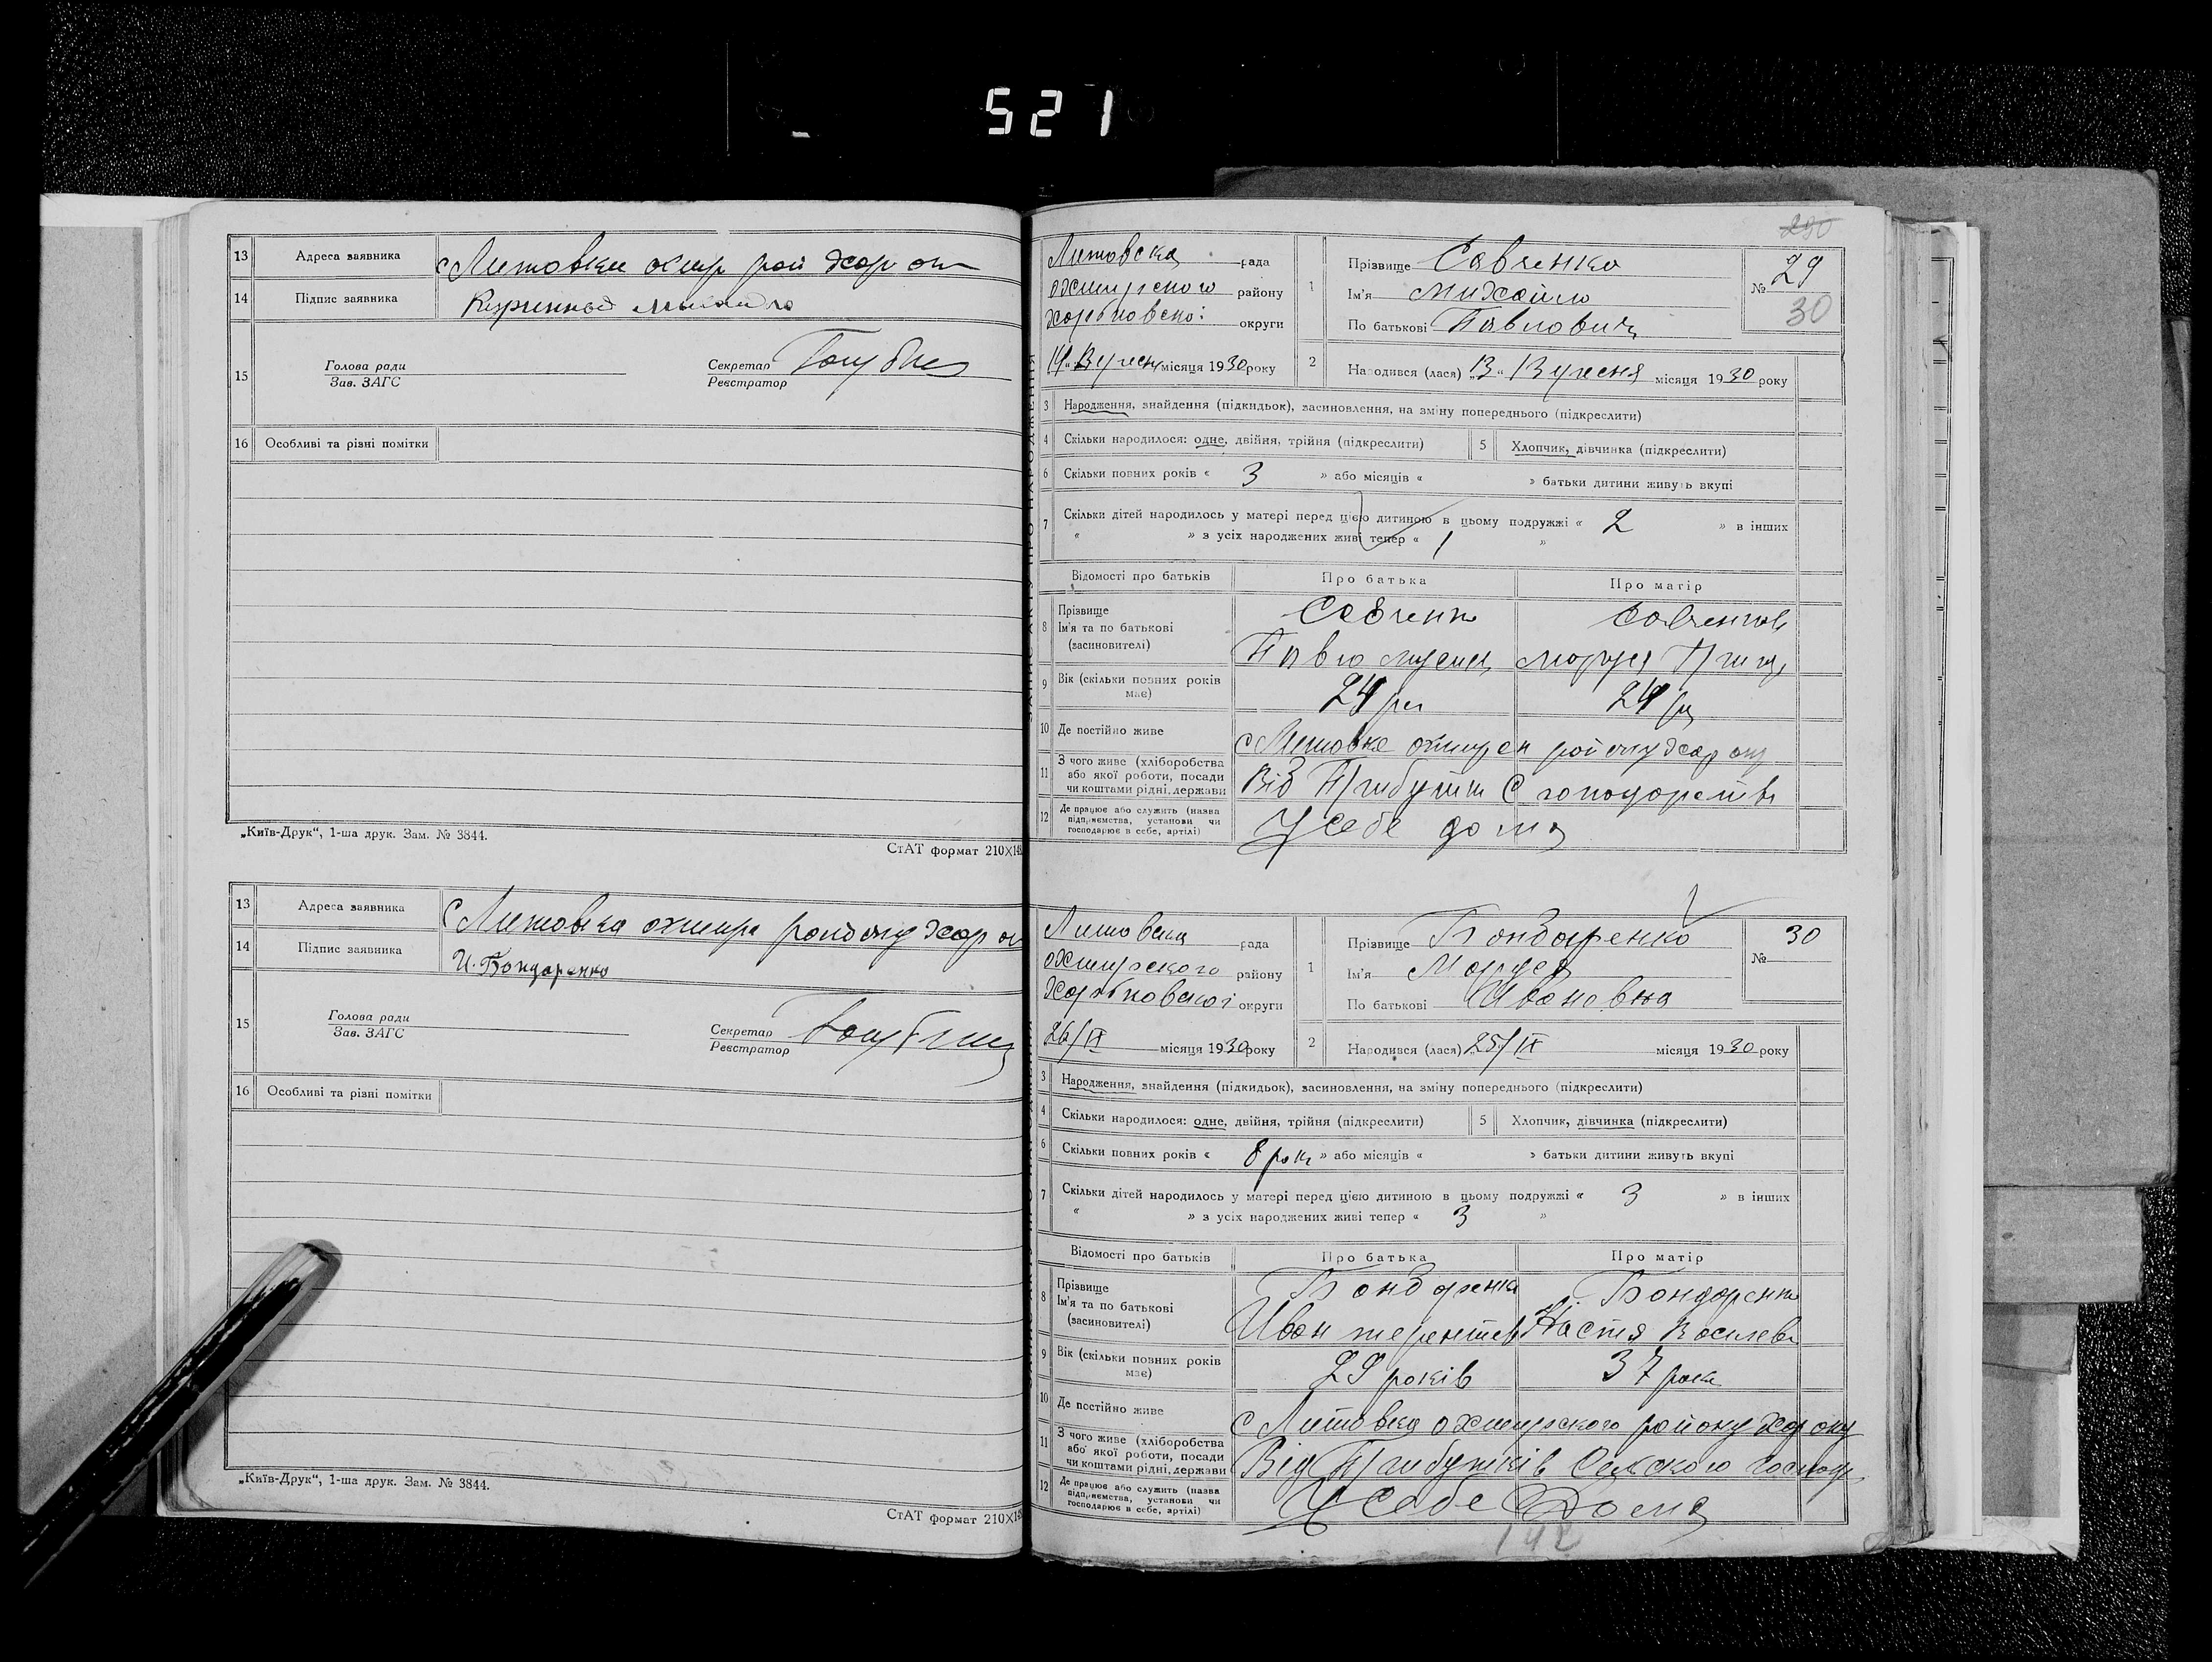 521
13 Адреса заявника с Литовки охтир рай Хар ок
14 Підпис заявника
15 Голова ради
Зав. ЗАГС
Секретар
Реєстратор
16 Особливі та різні помітки
„Київ-Друк“, 1-ша друк. Зам. № 3844.
СтАТ формат 210×148
13 Адреса заявника с Литовка охтирс району Хар ок
14 Підпис заявника И. Бондаренко
15 Голова ради
Зав. ЗАГС
Секретар
Реєстратор
16 Особливі та різні помітки
„Київ-Друк“, 1-ша друк. Зам. № 3844.
СтАТ формат 210×148
230
Литовска рада
охтирского району
харьковской округи
14 Вересня місяця 1930 року
1 Прізвище Савченко
Ім'я Михайло
По батькові Павлович
№ 29
30
2 Народився (лася) „13“ Вересня місяця 1930 року
3 Народження, знайдення (підкидьок), засиновлення, на зміну попереднього (підкреслити)
4 Скільки народилося: одне, двійня, трійня (підкреслити) 5 Хлопчик, дівчинка (підкреслити)
6 Скільки повних років « 3 » або місяців « » батьки дитини живуть вкупі
7 Скільки дітей народилось у матері перед цією дитиною в цьому подружжі « 2 » в інших
« » з усіх народжених живі тепер « 1 »
Відомості про батьків Про батька Про матір
8 Прізвище
Ім'я та по батькові
(засиновителі)
Савченко
Павло
9 Вік (скільки повних років має) 24 24
10 Де постійно живе с Литовка охтирск району Хар ок
11 З чого живе (хліборобства
або якої роботи, посади
чи коштами рідні, держави
Від Прибутків С господарства
12 Де працює або служить (назва
підприємства, установи чи
господарює в себе, артілі)
У себе дома
Литовска рада
охтирского району
Харьковской округи
26/IX місяця 1930 року
1 Прізвище Бондаренко
Ім'я Маруся
По батькові Ивановна
№ 30
2 Народився (лася) 25/IX місяця 1930 року
3 Народження, знайдення (підкидьок), засиновлення, на зміну попереднього (підкреслити)
4 Скільки народилося: одне, двійня, трійня (підкреслити) 5 Хлопчик, дівчинка (підкреслити)
6 Скільки повних років « 8 рок » або місяців « » батьки дитини живуть вкупі
7 Скільки дітей народилось у матері перед цією дитиною в цьому подружжі « 3 » в інших
« » з усіх народжених живі тепер « 3 »
Відомості про батьків Про батька Про матір
8 Прізвище
Ім'я та по батькові
(засиновителі)
Бондаренко Бондаренко
Иван терентьев Настя Василев
9 Вік (скільки повних років має) 29 років 37 рок
10 Де постійно живе с Литовка охтирского району Хар окр
11 З чого живе (хліборобства
або якої роботи, посади
чи коштами рідні, держави
Від Прибутків Сельского господ
12 Де працює або служить (назва
підприємства, установи чи
господарює в себе, артілі)
У себе Дома
142